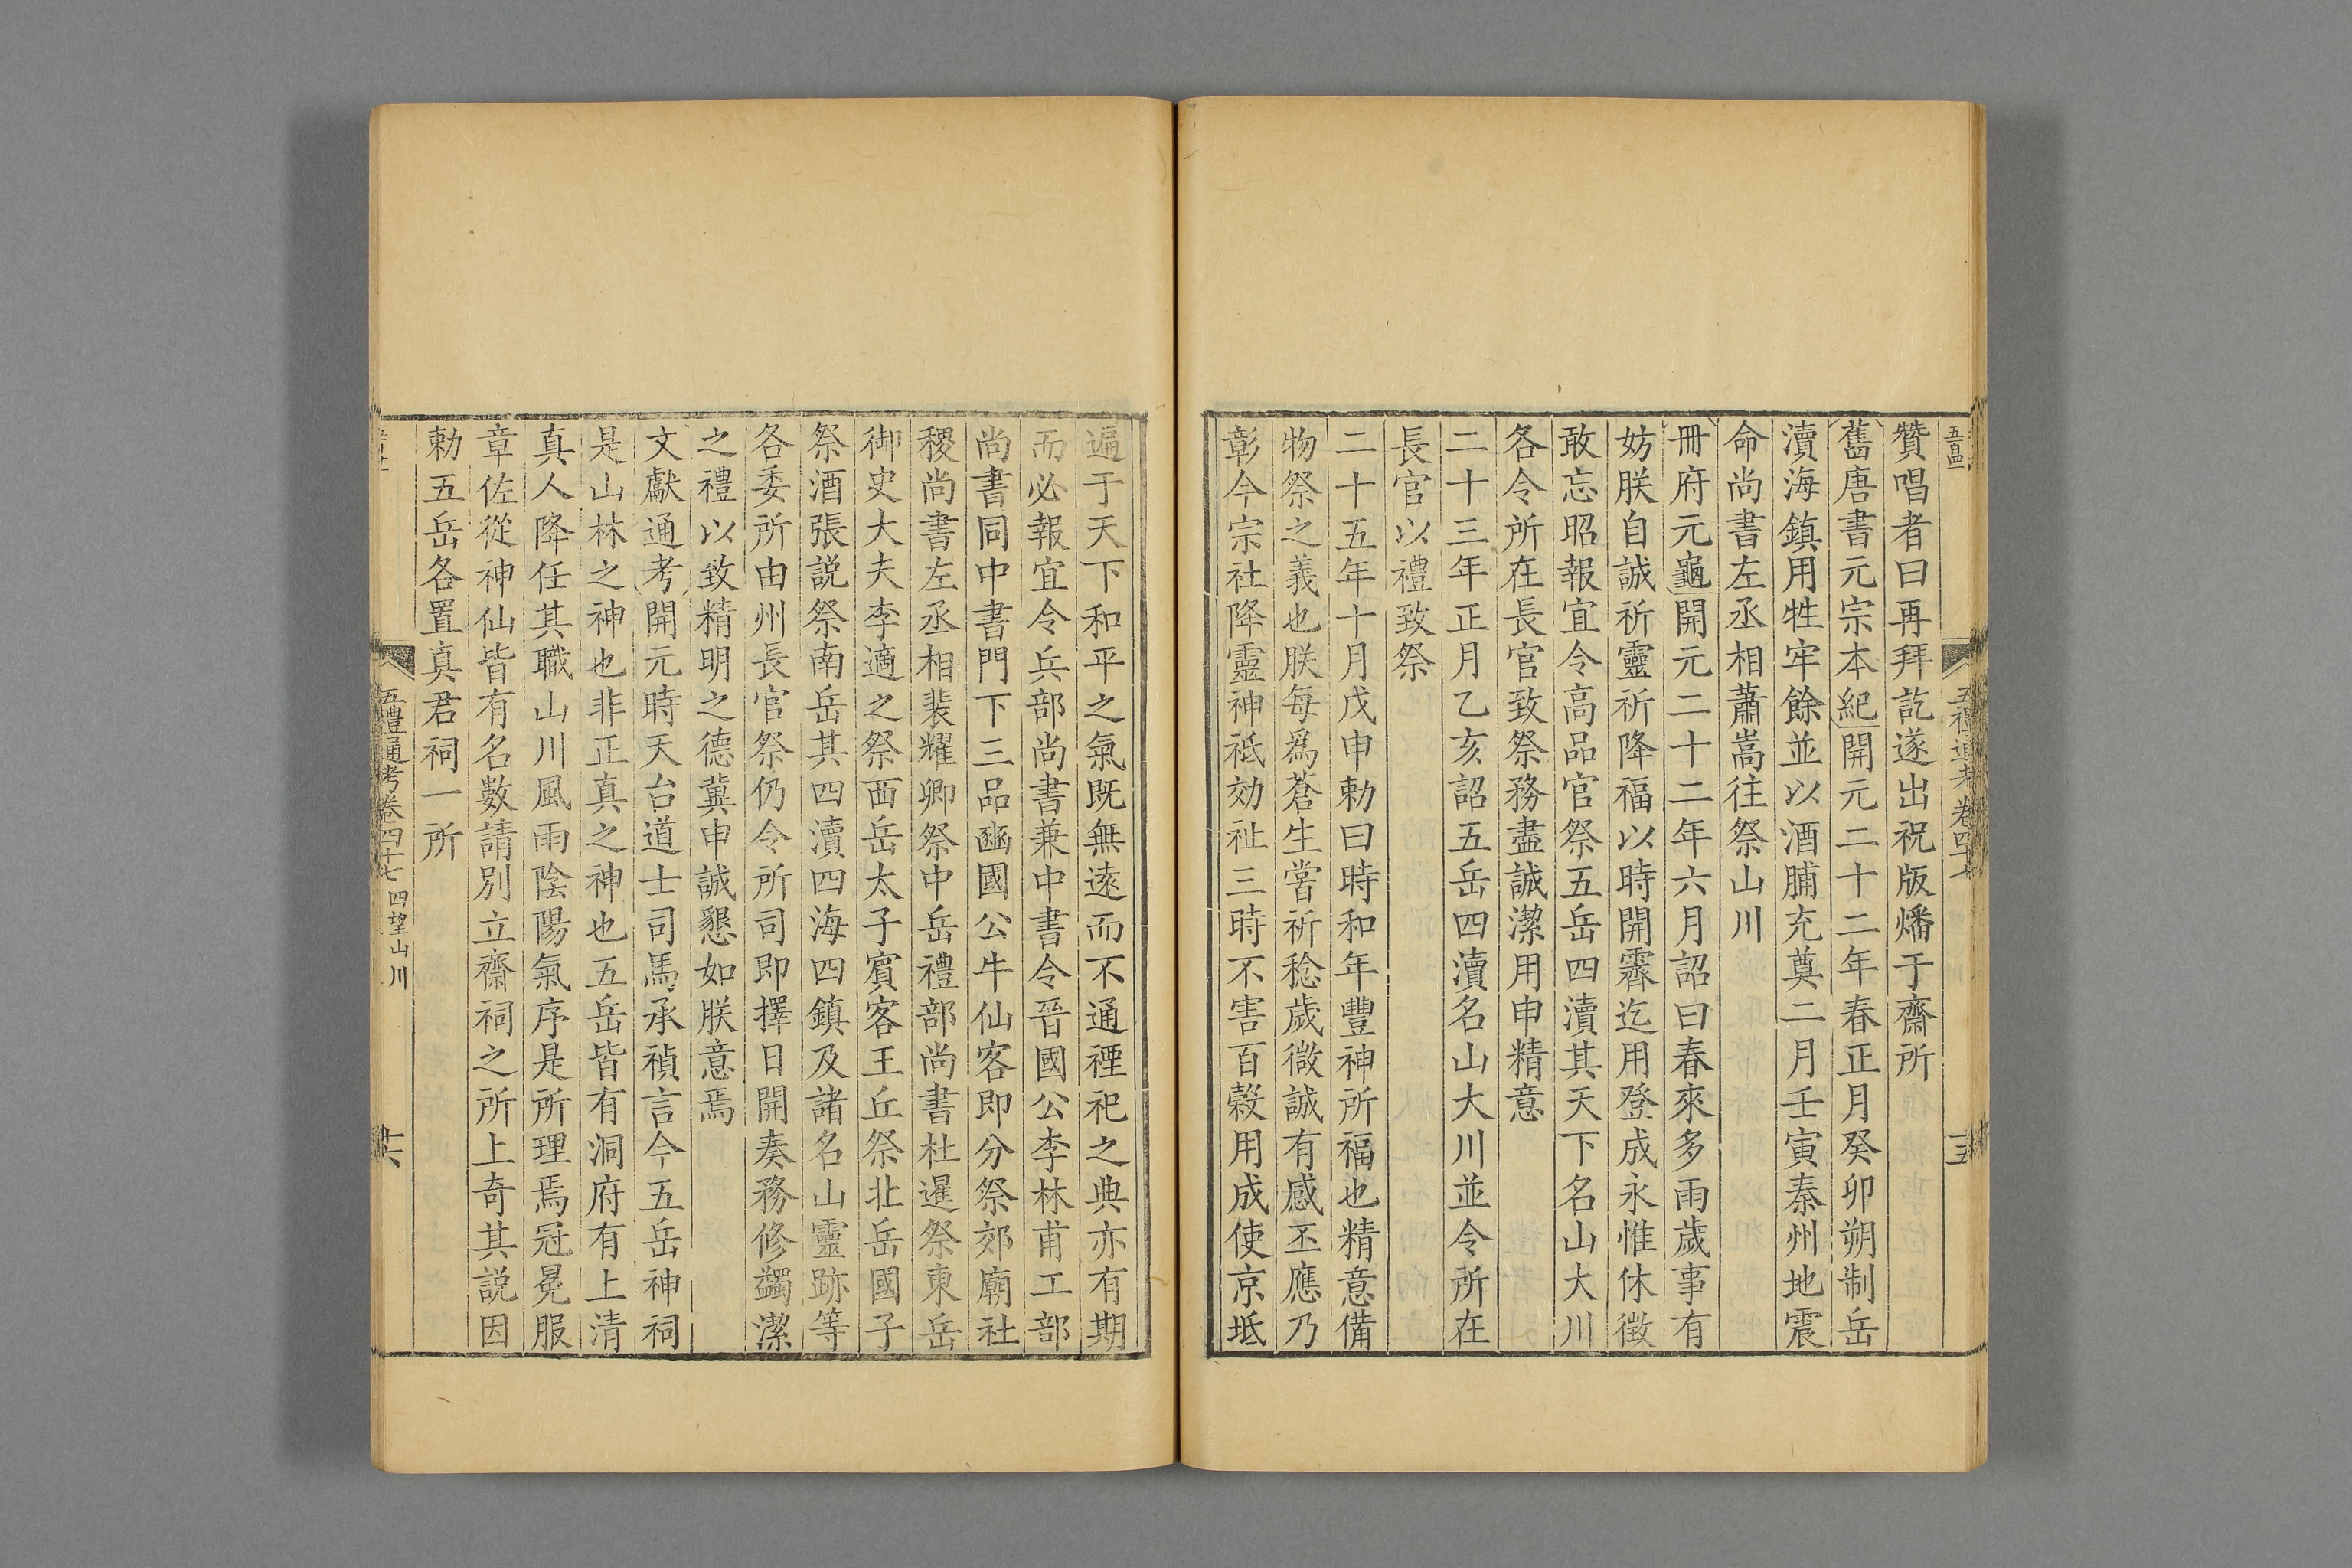 贊唱者曰再拜訖遂出祝版燔于齋所
舊唐書元宗本紀開元二十二年春正月癸卯朔制岳
瀆海鎮用牲牢餘並以酒脯充奠二月壬寅秦州地震
命尚書左丞相蕭嵩往祭山川
冊府元龜開元二十二年六月詔曰春來多雨歲事有
妨朕自誠祈靈祈降福以時開霽迄用登成永惟休徵
敢忘昭報宜令高品官祭五岳四瀆其天下名山大川
各令所在長官致祭務盡誠潔用申精意
二十三年正月乙亥詔五岳四瀆名山大川並令所在
長官以禮致祭
二十五年十月戊申勅曰時和年豐神所福也精意備
物祭之義也朕每爲蒼生嘗祈稔歲微誠有感丕應乃
彰今宗社降靈神祗効祉三時不害百榖用成使京坻
遍于天下和平之氣既無遠而不通禋祀之典亦有期
而必報宜令兵部尚書兼中書令晉國公李林甫工部
尚書同中書門下三品豳國公牛仙客即分祭郊廟社
稷尚書左丞相裴耀卿祭中岳禮部尚書杜暹祭東岳
御史大夫李適之祭西岳太子賓客王丘祭北岳國子
祭酒張説祭南岳其四瀆四海四鎮及諸名山靈跡等
各委所由州長官祭仍令所司即擇日開奏務修蠲潔
之禮以致精明之德冀申誠懇如朕意焉
文獻通考開元時天台道士司馬承禎言今五岳神祠
是山林之神也非正真之神也五岳皆有洞府有上清
真人降任其職山川風雨陰陽氣序是所理焉冠冕服
章佐從神仙皆有名數請別立齋祠之所上奇其説因
勅五岳各置真君祠一所
五禮通考卷四十七 四望山川